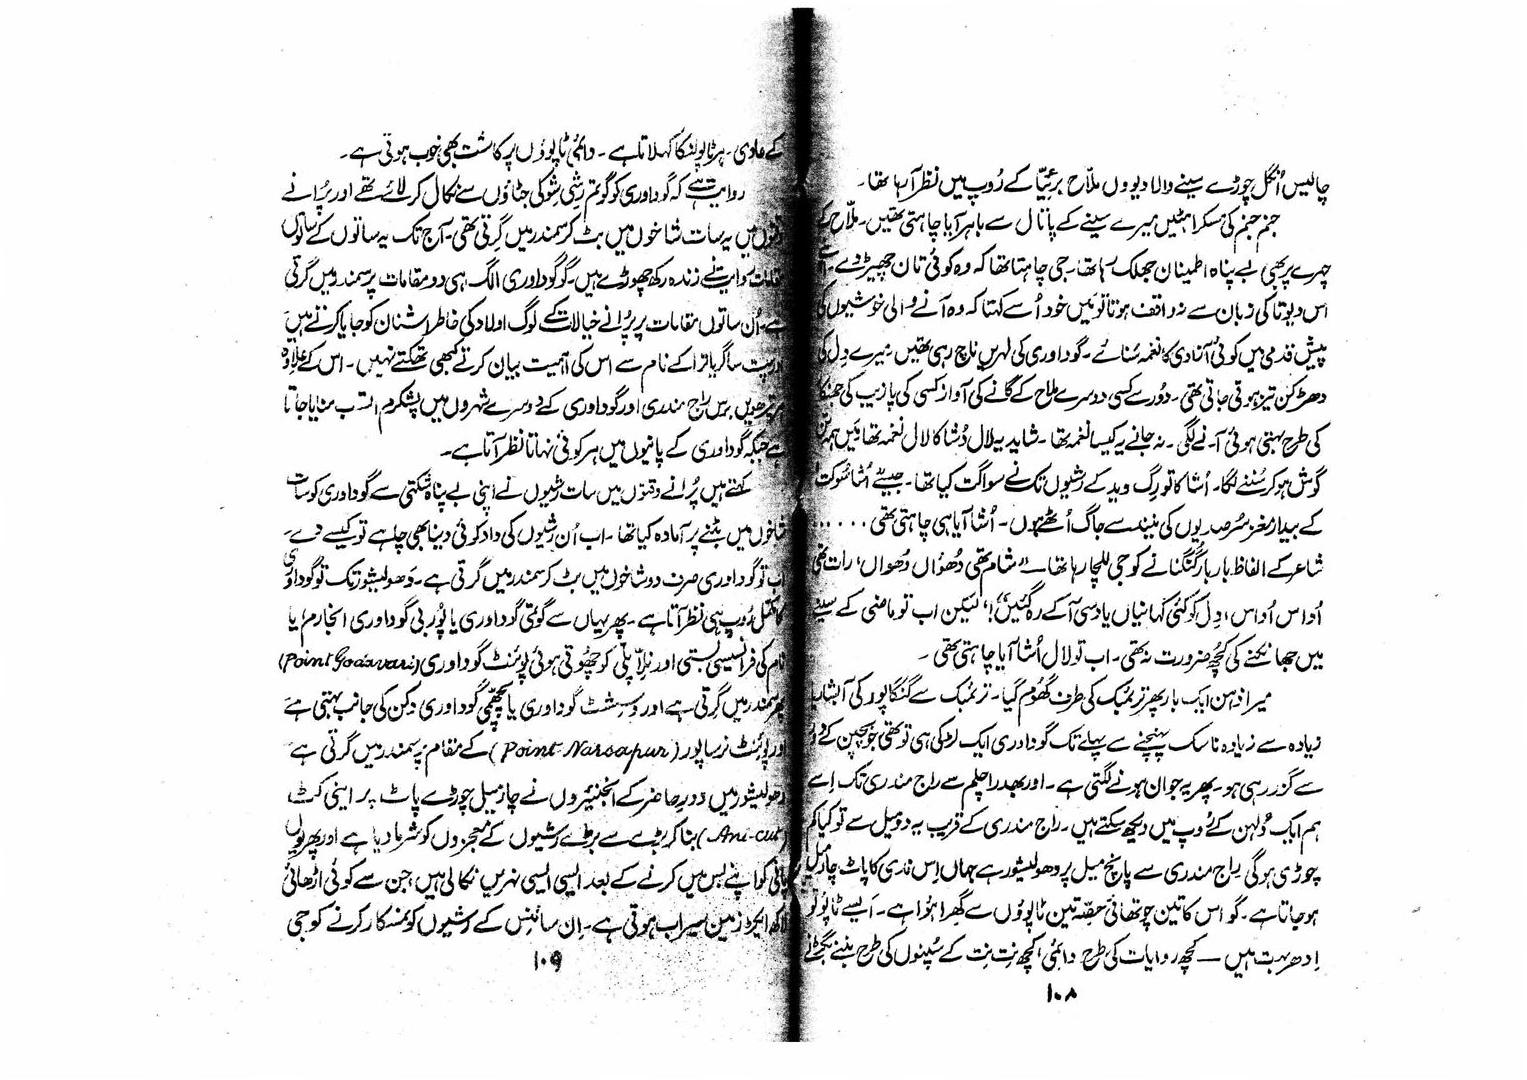 چالیس اُنگل چوڑے سینے والا دیووں ملّاح بر عیّا کے رُوپ میں نظر آ رہا تھا۔
جنم جنم کی مسکراہٹیں میرے سینے کے پاتال سے باہر آیا چاہتی تھیں۔ ملّاح کے
چہرے پر بھی بے پناہ اطمینان جھلک رہا تھا۔ جی چاہتا تھا کہ وہ کوئی تان چھیڑ دے۔
اس دیوتا کی زبان سے نہ واقف ہوتا تو میں خود اُسے کہتا کہ وہ آنے والی خوشیوں کی
پیش قدمی میں کوئی آزادی کا نغمہ سُنائے۔ گوداوری کی لہریں ناچ رہی تھیں۔ میرے دِل کی
دھڑکن تیز ہوتی جاتی تھی۔ دُور سے کسی دوسرے ملاح کے گانے کی آواز کسی کی پازیب کی جھنکار
کی طرح بہتی ہوئی آنے لگی۔ نہ جانے یہ کیسا نغمہ تھا۔ شاید یہ لال اُشا کا لال نغمہ تھا میں ہمہ تن
گوش ہو کر سُننے لگا۔ اُشا کا تو رِگ وید کے رشیوں تک نے سواگت کیا تھا۔ جیسے اُشا سُوکت
کے بیدار مغز سُر صدیوں کی نیند سے جاگ اُٹھے ہوں۔ اُشا آیا ہی چاہتی تھی .....
شاعر کے الفاظ بار بار گنگنانے کو جی للچا رہا تھا — ”شام تھی دُھواں دُھواں، رات تھی
اُداس اُداس، دِل کو کئی کہانیاں یاد سی آ کے رہ گئیں“! لیکن اب تو ماضی کے سینے
میں جھانکنے کی کچھ ضرورت نہ تھی۔ اب تو لال اُشا آیا چاہتی تھی۔
میرا ذہن ایک بار پھر ترئمبک کی طرف گھُوم گیا۔ ترئمبک سے گنگاپور کی آبشار
زیادہ سے زیادہ ناسک پہنچنے سے پہلے تک گوداوری ایک لڑکی ہی تو تھی جو بچپن کے دَور
سے گزر رہی ہو۔ پھر یہ جوان ہونے لگتی ہے۔ اور بھدراچلم سے راج مندری تک اِسے
ہم ایک دُلہن کے رُوپ میں دیکھ سکتے ہیں۔ راج مندری کے قریب یہ دو میل سے تو کیا کم
چوڑی ہوگی۔ راج مندری سے پانچ میل پر دھولیشور ہے جہاں اِس ندی کا پاٹ چار میل
ہو جاتا ہے۔ گو اس کا تین چوتھائی حصّہ تین ٹاپوؤں سے گھرا ہُوا ہے۔ ایسے ٹاپو تو
اِدھر بہت ہیں — کچھ روایات کی طرح دائمی، کچھ نِت نِت کے سُپنوں کی طرح بننے بگڑنے
۱۰۸
کے عادی۔ ہر ٹاپو لنکا کہلاتا ہے۔ دائمی ٹاپوؤں پر کاشت بھی خوب ہوتی ہے۔
روایت ہے کہ گوداوری کو گوتم رِشی شِو کی جٹاؤں سے نکال کر لائے تھے اور پُرانے
وقتوں میں یہ سات شاخوں میں بٹ کر سمندر میں گرتی تھی۔ آج تک یہ ساتوں کے ساتوں
مقامات روایت نے زندہ رکھ چھوڑے ہیں۔ گو گوداوری الگ ہی دو مقامات پر سمندر میں گرتی
ہے۔ اُن ساتوں مقامات پر پُرانے خیالات کے لوگ اولاد کی خاطر اشنان کو جایا کرتے ہیں
اور سپت ساگر یاترا کے نام سے اس کی اہمیت بیان کرتے کبھی تھکتے نہیں۔ اس کے علاوہ
ہر تیرھویں برس راج مندری اور گوداوری کے دوسرے شہروں میں پُشکرم اُتسب منایا جاتا
ہے جبکہ گوداوری کے پانیوں میں ہر کوئی نہاتا نظر آتا ہے۔
کہتے ہیں پُرانے وقتوں میں سات رِشیوں نے اپنی بے پناہ شکتی سے گوداوری کو سات
شاخوں میں بٹنے پر آمادہ کیا تھا۔ اب اُن رِشیوں کی داد کوئی دینا بھی چاہے تو کیسے دے۔
اب تو گوداوری صرف دو شاخوں میں بٹ کر سمندر میں گرتی ہے۔ دھولیشور تک تو گوداوری
کا مکمل رُوپ ہی نظر آتا ہے۔ پھر یہاں سے گوتمی گوداوری یا پُوربی گوداوری انجارم یا
نام کی فرانسیسی بستی اور نلّا پلّی کو چھُوتی ہوئی پوئنٹ گوداوری (Point Godavari)
پر سمندر میں گرتی ہے اور وسِشٹ گوداوری یا پچھمّی گوداوری دکن کی جانب بہتی ہے
اور پوئنٹ نرساپور (Point Narsapur) کے مقام پر سمندر میں گرتی ہے
دھولیشور میں دورِ حاضر کے انجنیئروں نے چار میل چوڑے پاٹ پر اینی کٹ
(Ani-cut) بنا کر بڑے سے بڑے رشیوں کے معجزوں کو شرما دیا ہے اور پھر یوں
پانی کو اپنے بس میں کرنے کے بعد ایسی ایسی نہریں نکالی ہیں جن سے کوئی اڑھائی
لاکھ ایکڑ زمین سیراب ہوتی ہے۔ اِن سائنس کے رشیوں کو نمسکار کرنے کو جی
۱۰۹